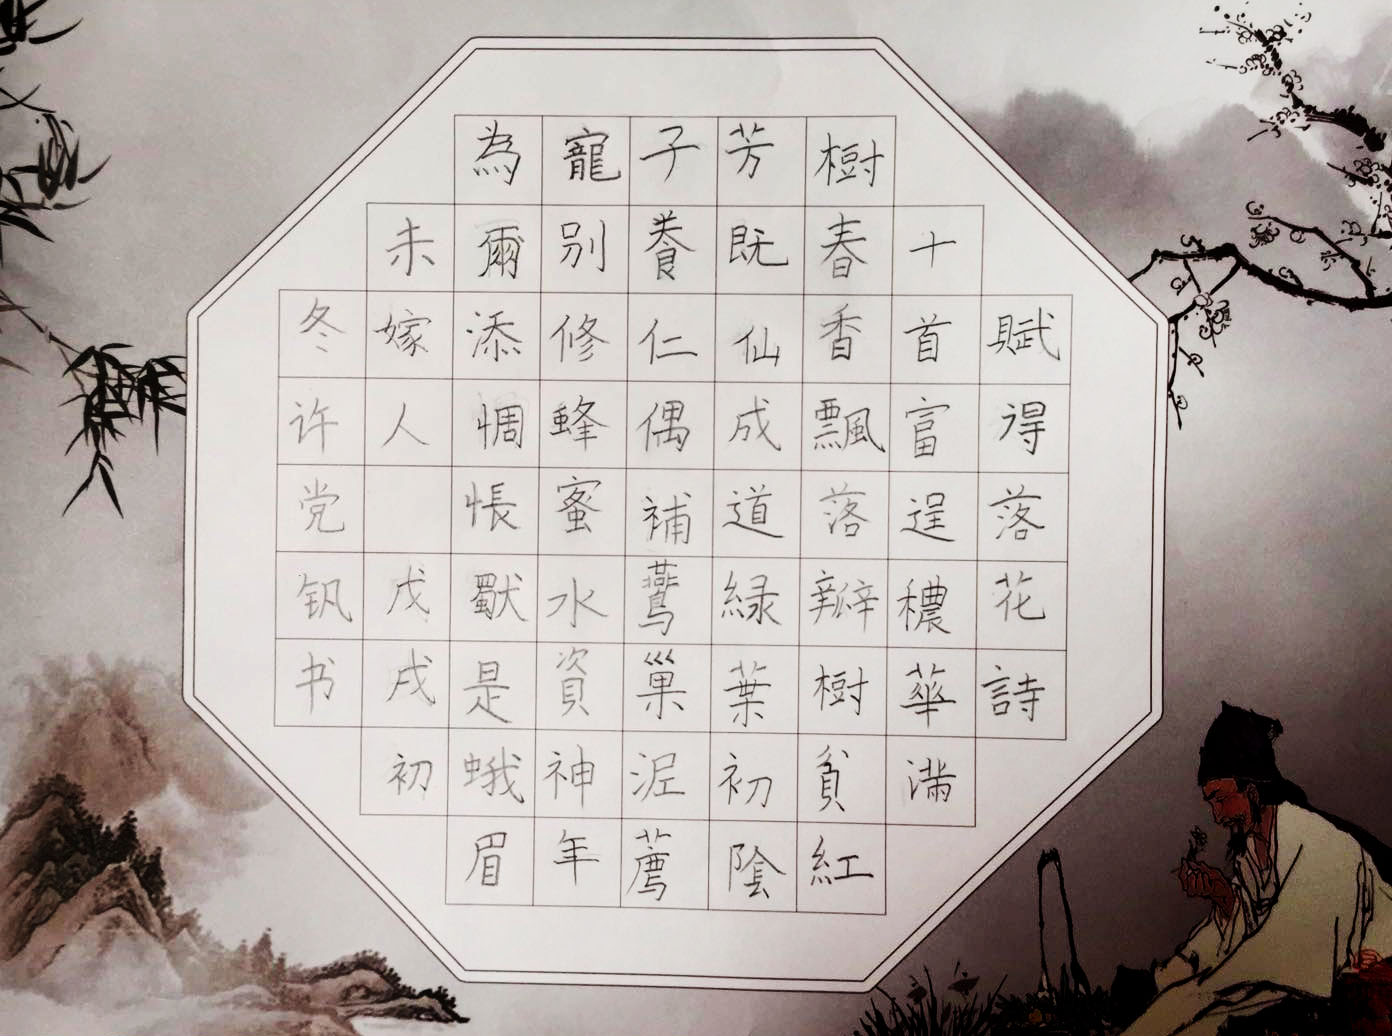 賦得落花詩
十首富逞穠華滿
樹春香飄落瓣樹貧紅
芳既仙成道緑葉初陰
子養仁偶補鷰巢泥薦
寵別修蜂蜜水資神年
為爾添惆悵獨是蛾眉
未嫁人 戊戌初
冬许党钒书